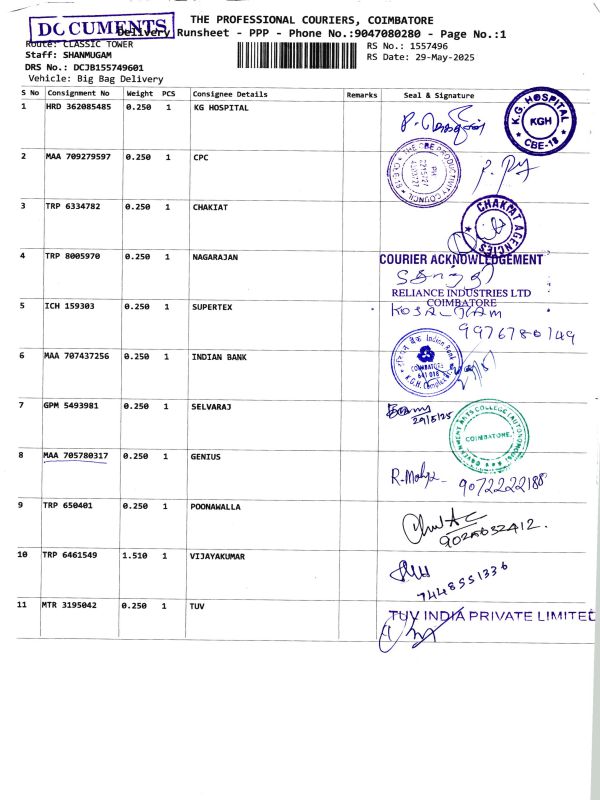 DOCUMENTS
THE PROFESSIONAL COURIERS, COIMBATORE
Delivery Runsheet - PPP - Phone No.:9047080280 - Page No.:1
Route: CLASSIC TOWER
RS No.: 1557496
Staff: SHANMUGAM
RS Date: 29-May-2025
DRS No.: DCJB155749601
Vehicle: Big Bag Delivery
S No Consignment No Weight PCS Consignee Details Remarks Seal & Signature
1 HRD 362085485 0.250 1 KG HOSPITAL
K.G. HOSPITAL KGH CBE-18
2 MAA 709279597 0.250 1 CPC
THE CBE PRODUCTIVITY COUNCIL
3 TRP 6334782 0.250 1 CHAKIAT
CHAKIAT AGENCIES
4 TRP 8005970 0.250 1 NAGARAJAN
COURIER ACKNOWLEDGEMENT
RELIANCE INDUSTRIES LTD
COIMBATORE
5 ICH 159303 0.250 1 SUPERTEX
9976780149
6 MAA 707437256 0.250 1 INDIAN BANK
Indian Bank
COIMBATORE
641 018
K.G.H. Complex
7 GPM 5493981 0.250 1 SELVARAJ
29/5/25
GOVERNMENT ARTS COLLEGE (AUTONOMOUS)
COIMBATORE.
8 MAA 705780317 0.250 1 GENIUS
9072222188
9 TRP 650401 0.250 1 POONAWALLA
10 TRP 6461549 1.510 1 VIJAYAKUMAR
7448551336
11 MTR 3195042 0.250 1 TUV
TUV INDIA PRIVATE LIMITED